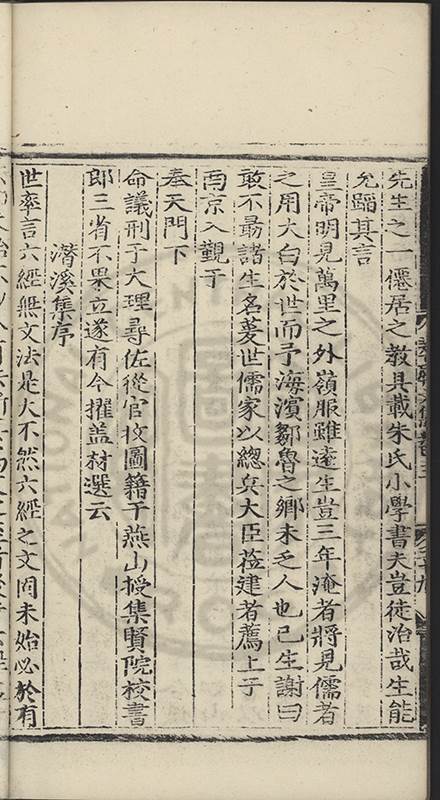 先生之一僊居之教具載朱氏小學書夫豈徒治哉生能
允蹈其言
皇帝明見萬里之外嶺服雖遠生豈三年淹者將見儒者
之用大白於世而予海濱鄒魯之鄉未乏人也已生謝曰
敢不勗諸生名蔓世儒家以總兵大臣莅建者薦上于
両京入覲于
奉天門下
命議刑于大理尋佐從官收圖籍于燕山授集賢院校書
郎三省不果立遂有今擢蓋材選云
潛溪集序
世率言六經無文法是大不然六經之文固未始必於有